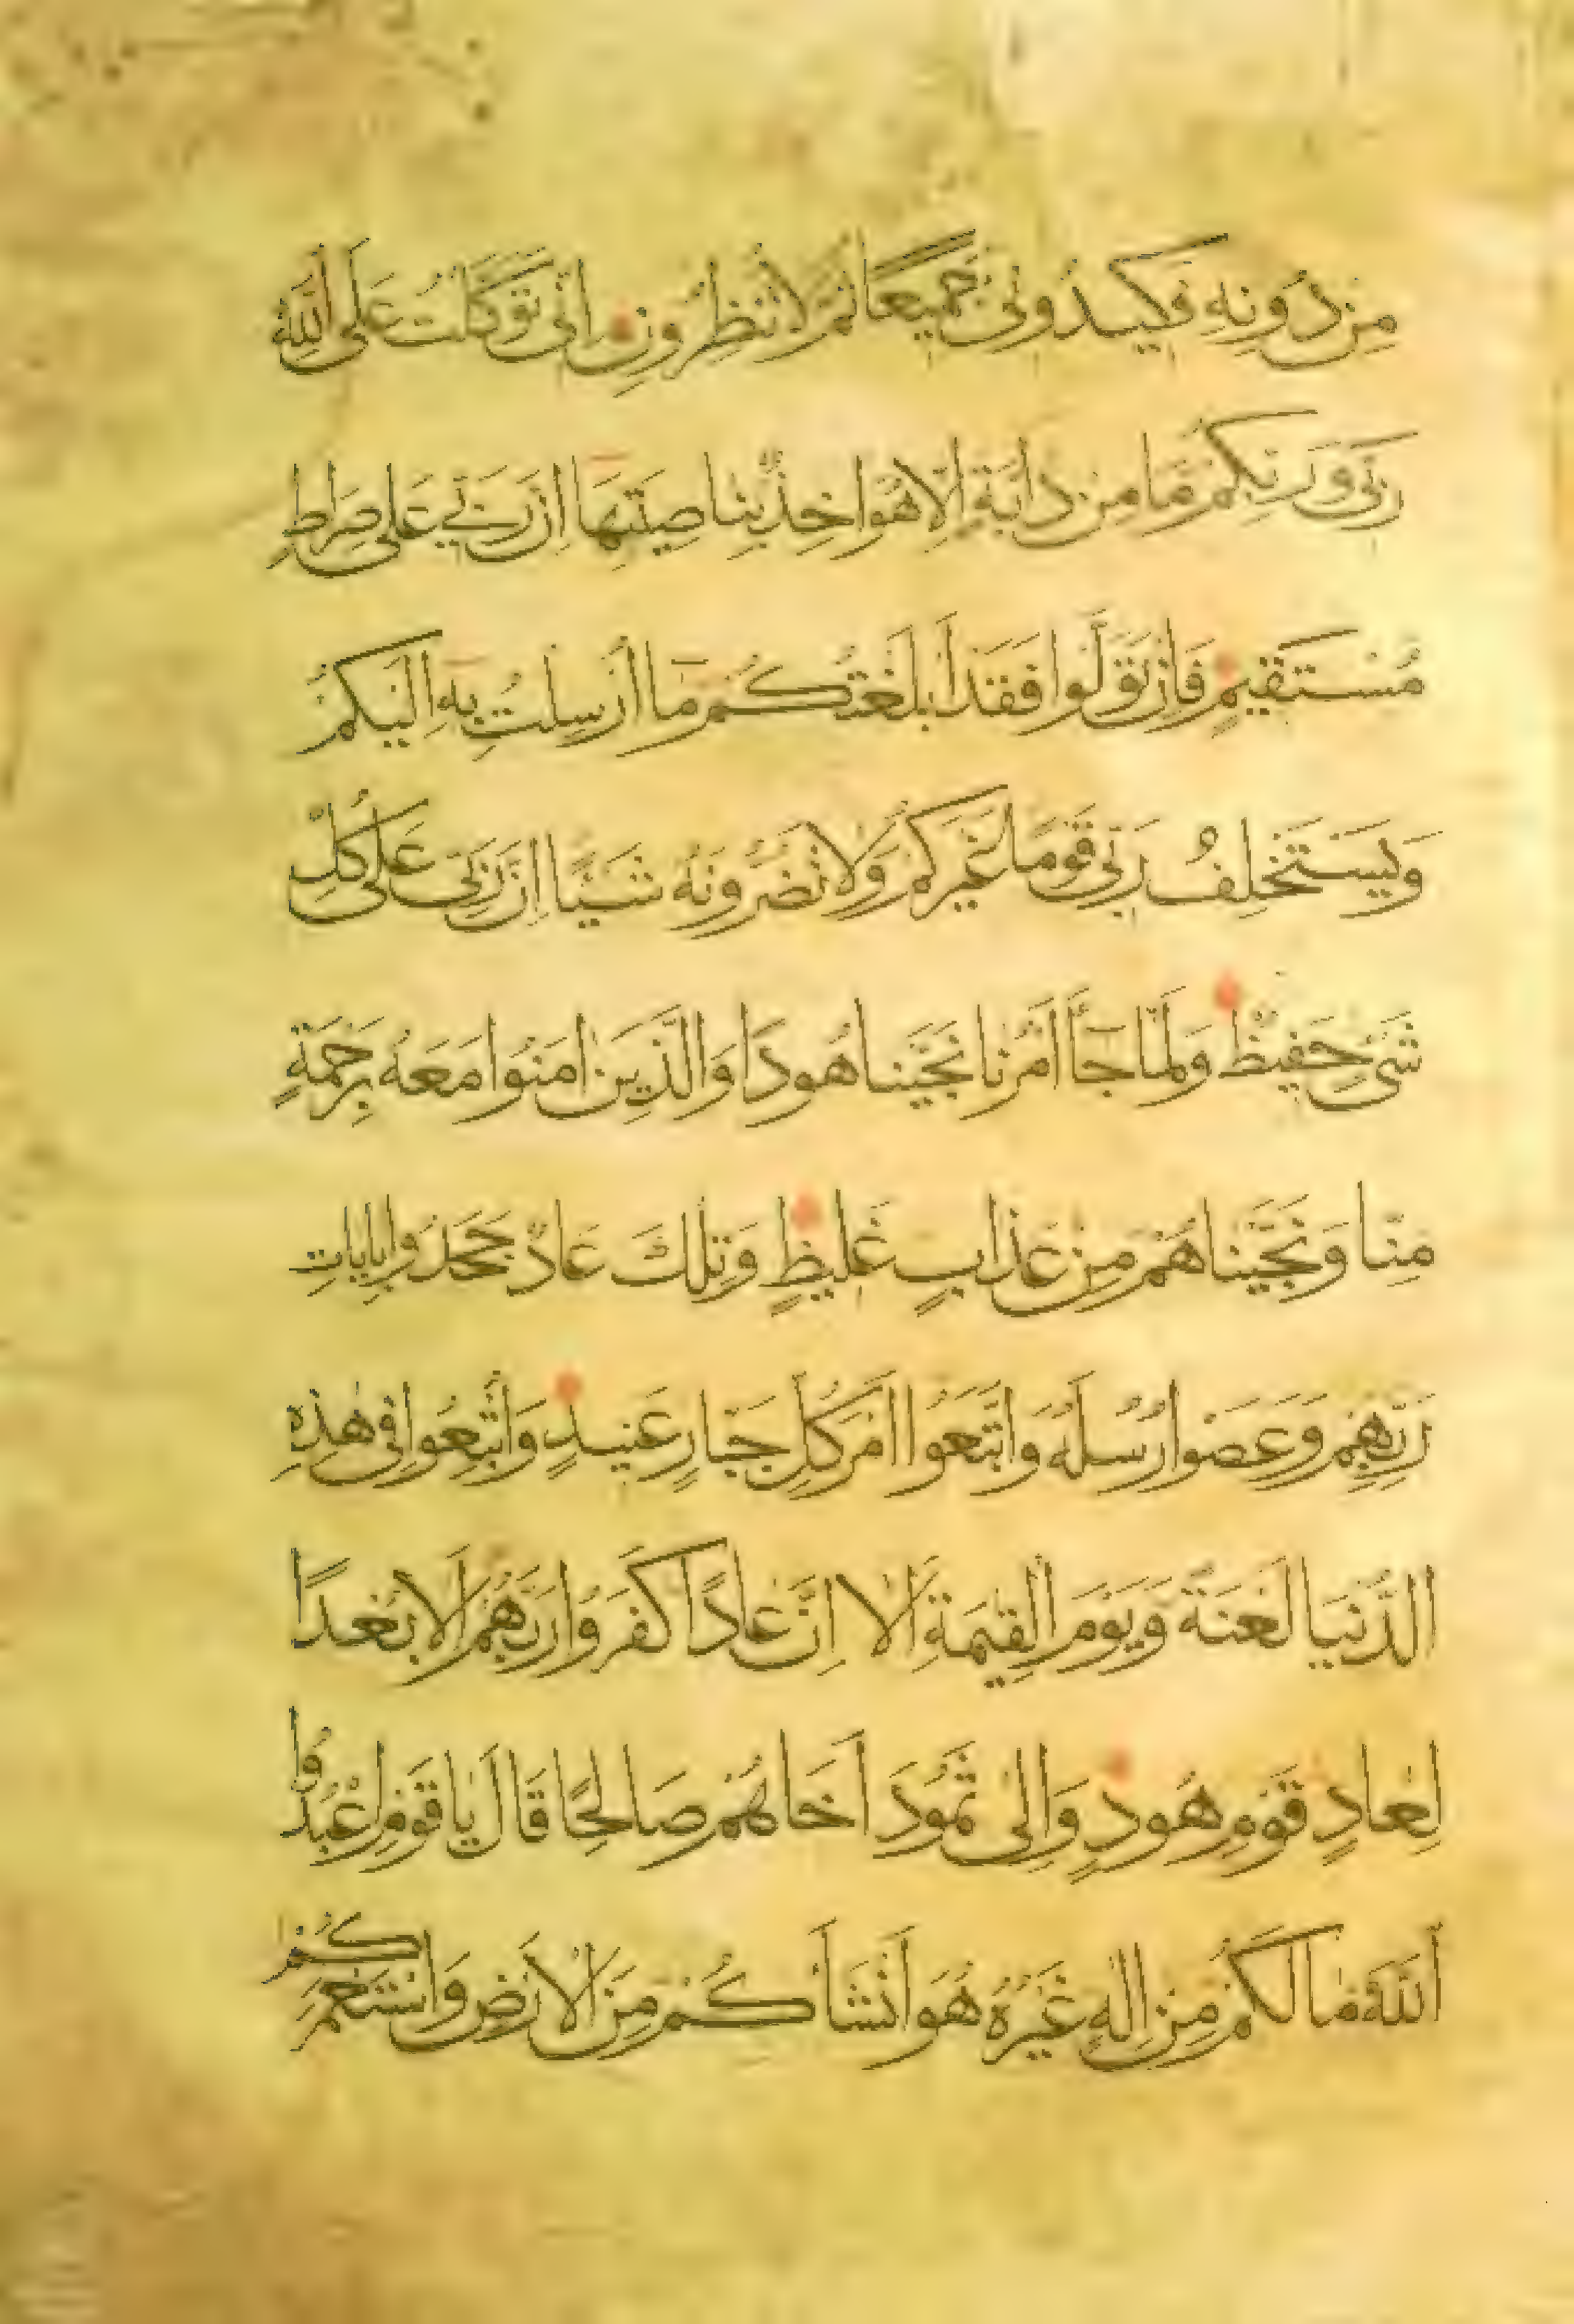 مِنْ دُونِهِ فَكِيدُونِي جَمِيعًا ثُمَّ لَا تُنْظِرُونِ اِنِّي تَوَكَّلْتُ عَلَى اللهِ
رَبِّي وَرَبِّكُمْ مَا مِنْ دَابَّةٍ اِلَّا هُوَ اٰخِذٌ بِنَاصِيَتِهَا اِنَّ رَبِّي عَلٰى صِرَاطٍ
مُسْتَقِيمٍ فَاِنْ تَوَلَّوْا فَقَدْ اَبْلَغْتُكُمْ مَا اُرْسِلْتُ بِهِ اِلَيْكُمْ
وَيَسْتَخْلِفُ رَبِّي قَوْمًا غَيْرَكُمْ وَلَا تَضُرُّونَهُ شَيْئًا اِنَّ رَبِّي عَلٰى كُلِّ
شَيْءٍ حَفِيظٌ وَلَمَّا جَآءَ اَمْرُنَا نَجَّيْنَا هُودًا وَالَّذِينَ اٰمَنُوا مَعَهُ بِرَحْمَةٍ
مِنَّا وَنَجَّيْنَاهُمْ مِنْ عَذَابٍ غَلِيظٍ وَتِلْكَ عَادٌ جَحَدُوا بِاٰيَاتِ
رَبِّهِمْ وَعَصَوْا رُسُلَهُ وَاتَّبَعُوا اَمْرَ كُلِّ جَبَّارٍ عَنِيدٍ وَاُتْبِعُوا فِي هٰذِهِ
الدُّنْيَا لَعْنَةً وَيَوْمَ الْقِيٰمَةِ اَلَا اِنَّ عَادًا كَفَرُوا رَبَّهُمْ اَلَا بُعْدًا
لِعَادٍ قَوْمِ هُودٍ وَاِلٰى ثَمُودَ اَخَاهُمْ صَالِحًا قَالَ يَا قَوْمِ اعْبُدُوا
اَللهَ مَا لَكُمْ مِنْ اِلٰهٍ غَيْرُهُ هُوَ اَنْشَاَكُمْ مِنَ الْاَرْضِ وَاسْتَعْمَرَكُمْ